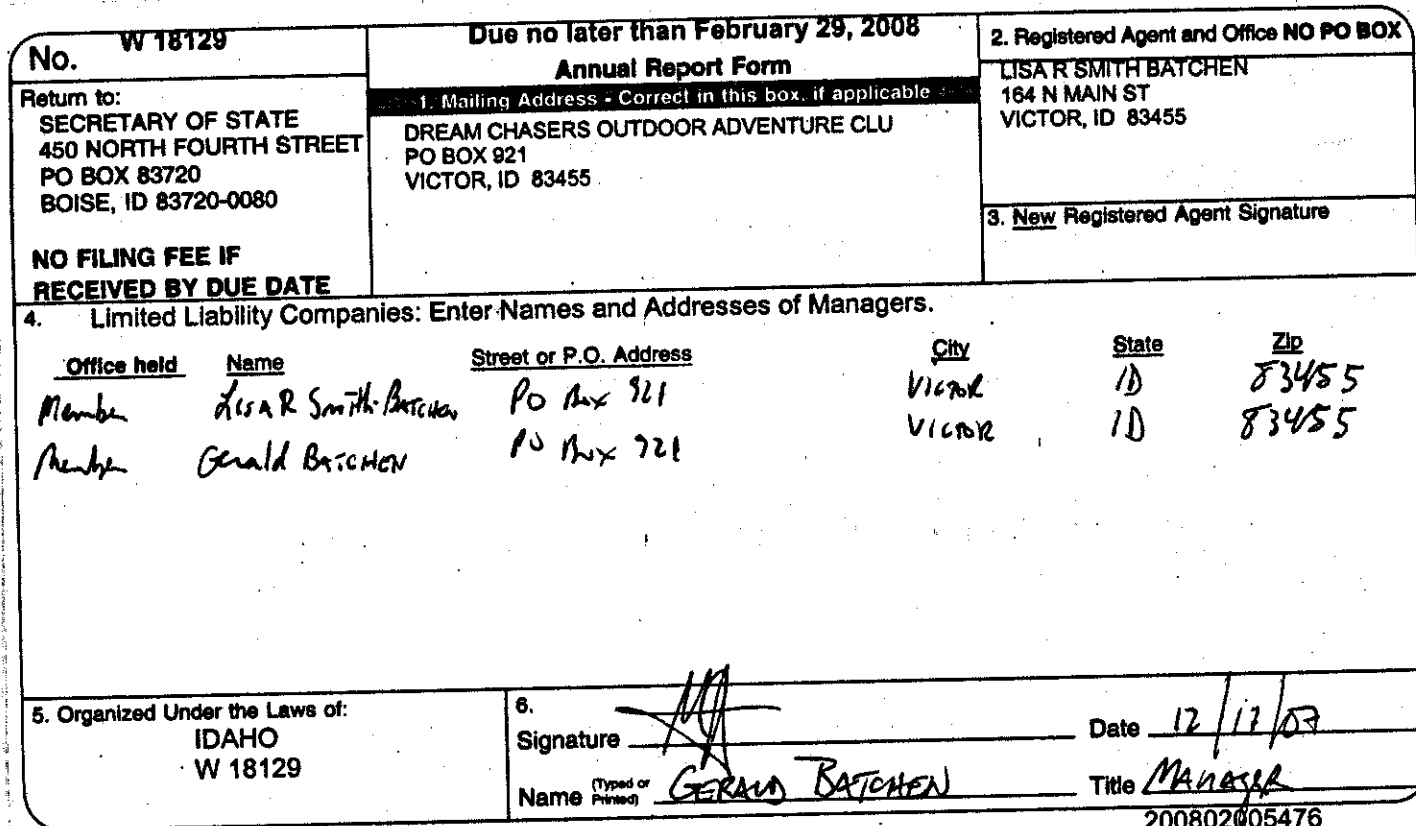 No. W 18129
Return to:
SECRETARY OF STATE
450 NORTH FOURTH STREET
PO BOX 83720
BOISE, ID 83720-0080
NO FILING FEE IF
RECEIVED BY DUE DATE
Due no later than February 29, 2008
Annual Report Form
1. Mailing Address - Correct in this box, if applicable
DREAM CHASERS OUTDOOR ADVENTURE CLU
PO BOX 921
VICTOR, ID 83455
2. Registered Agent and Office NO PO BOX
LISA R SMITH BATCHEN
164 N MAIN ST
VICTOR, ID 83455
3. New Registered Agent Signature
4. Limited Liability Companies: Enter Names and Addresses of Managers.
Office held Name Street or P.O. Address City State Zip
Member Lisa R Smith-Batchen PO Box 921 VICTOR ID 83455
Member Gerald BATCHEN PO Box 921 VICTOR ID 83455
5. Organized Under the Laws of:
IDAHO
W 18129
6.
Signature Date 12/17/07
Name (Typed or Printed) GERALD BATCHEN Title MANAGER
200802005476